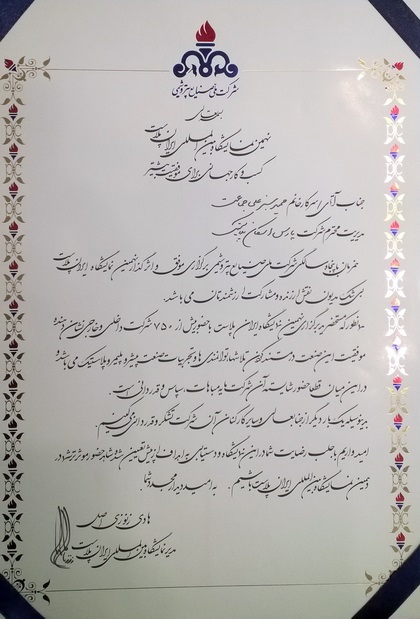 شرکت ملی صنایع پتروشیمی
بسمه تعالی
نهمین نمایشگاه بین المللی ایران پلاست
کسب و کار جهانی برای موفقیت بیشتر
جناب آقای / سرکار خانم حمید رستم علی جماعت
مدیریت محترم شرکت پارس
همزمان با پنجاه سالگی شرکت ملی صنایع پتروشیمی برگزاری موفق و اثرگذار نهمین نمایشگاه ایران پلاست
بی شک مدیون نقش ارزنده و مشارکت ارزشمندتان می باشد.
همانطور که مستحضرید برگزاری نهمین نمایشگاه ایران پلاست با حضور بیش از ۷۵۰ شرکت داخلی و خارجی نشان دهنده
موفقیت این صنعت در عرضه توانمندی ها و تجربیات صنعت پیشرو پلیمر و پلاستیک می باشد و
در این میان قطعا حضور شایسته آن شرکت مایه مباهات، سپاس و قدردانی است.
بدینوسیله یک بار دیگر از جنابعالی و سایر کارکنان آن شرکت تشکر و قدردانی می نماییم.
امیدواریم با جلب رضایت شما در این نمایشگاه و دستیابی به اهداف از پیش تعیین شده شاهد حضور موثرتر شما در
دهمین نمایشگاه بین المللی ایران پلاست باشیم. به امید دیدار مجدد شما
هادی زنوزی اصل
مدیر نمایشگاه بین المللی ایران پلاست